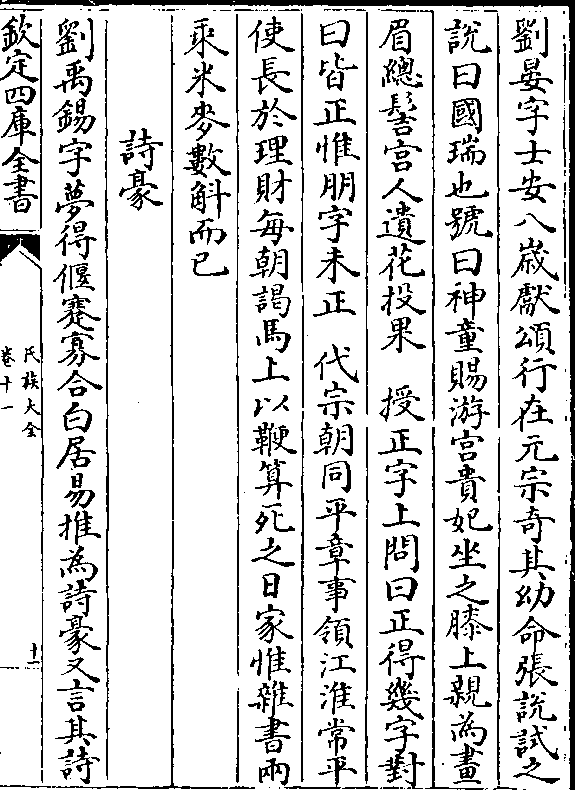 劉晏字士安八嵗獻頌行在元宗奇其幼命張說試之
說曰國瑞也號曰神童賜游宫貴妃坐之膝上親為畫
眉總髻宫人遺花投果　授正字上問曰正得幾字對
曰皆正惟朋字未正　代宗朝同平章事領江淮常平
使長於理財每朝謁馬上以鞭算死之日家惟雜書兩
乘米麥數斛而已
詩豪
劉禹錫字夢得偃蹇寡合白居易推為詩豪又言其詩
欽定四庫全書
氏族大全
卷十一
十二